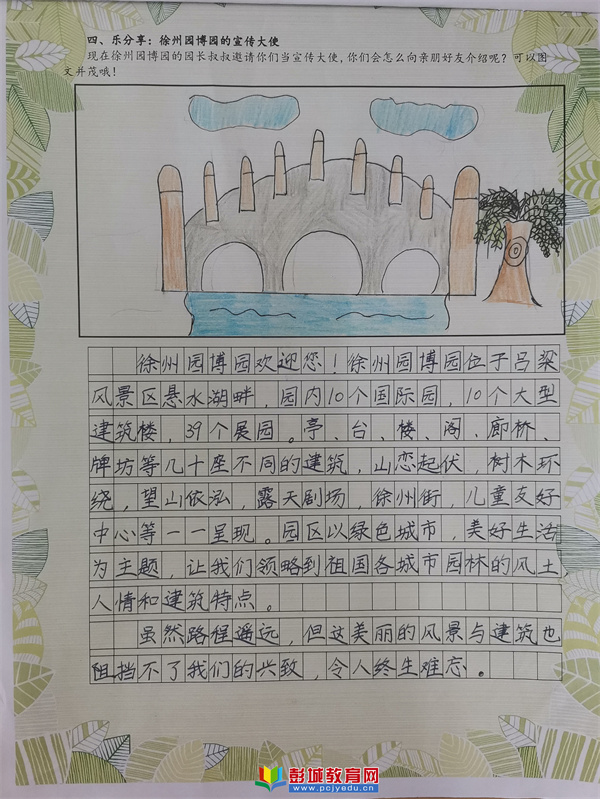 四、乐分享：徐州园博园的宣传大使
现在徐州园博园的园长叔叔邀请你们当宣传大使，你们会怎么向亲朋好友介绍呢？可以图
文并茂哦！
徐州园博园欢迎您！徐州园博园位于吕梁
风景区悬水湖畔，园内10个国际园，10个大型
建筑楼，39个展园。亭、台、楼、阁、廊桥、
牌坊等几十座不同的建筑，山恋起伏，树木环
绕，望山依泓，露天剧场，徐州街，儿童友好
中心等一一呈现。园区以绿色城市，美好生活
为主题，让我们领略到祖国各城市园林的风土，
人情和建筑特点。
虽然路程遥远，但这美丽的风景与建筑也
阻挡不了我们的兴致，令人终生难忘。
彭城教育网
www.pcjyedu.cn